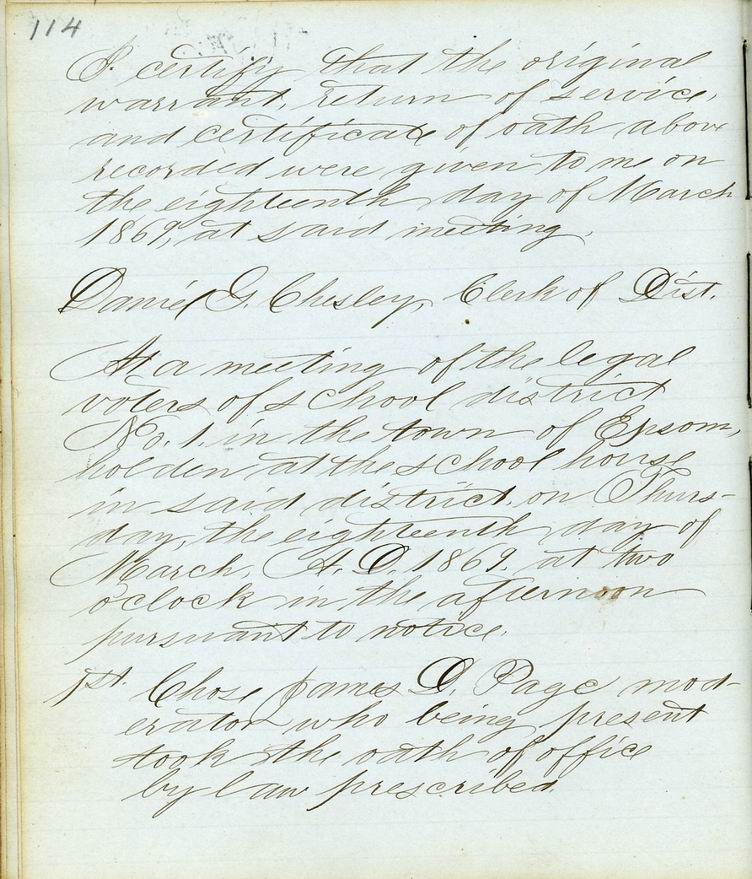 114
I certify that the original
warrant, return of service,
and certificate of oath above
recorded were given to me on
the eighteenth day of March
1869, at said meeting.
Daniel G. Chesley, Clerk of Dist.
At a meeting of the legal
voters of school district
No. 1. in the town of Epsom,
holden at the school house
in said district, on Thurs-
day, the eighteenth day of
March, A. D. 1869. at two
o'clock in the afternoon
pursuant to notice.
1st. Chose James D. Page mod-
erator who being present
took the oath of office
by law prescribed.